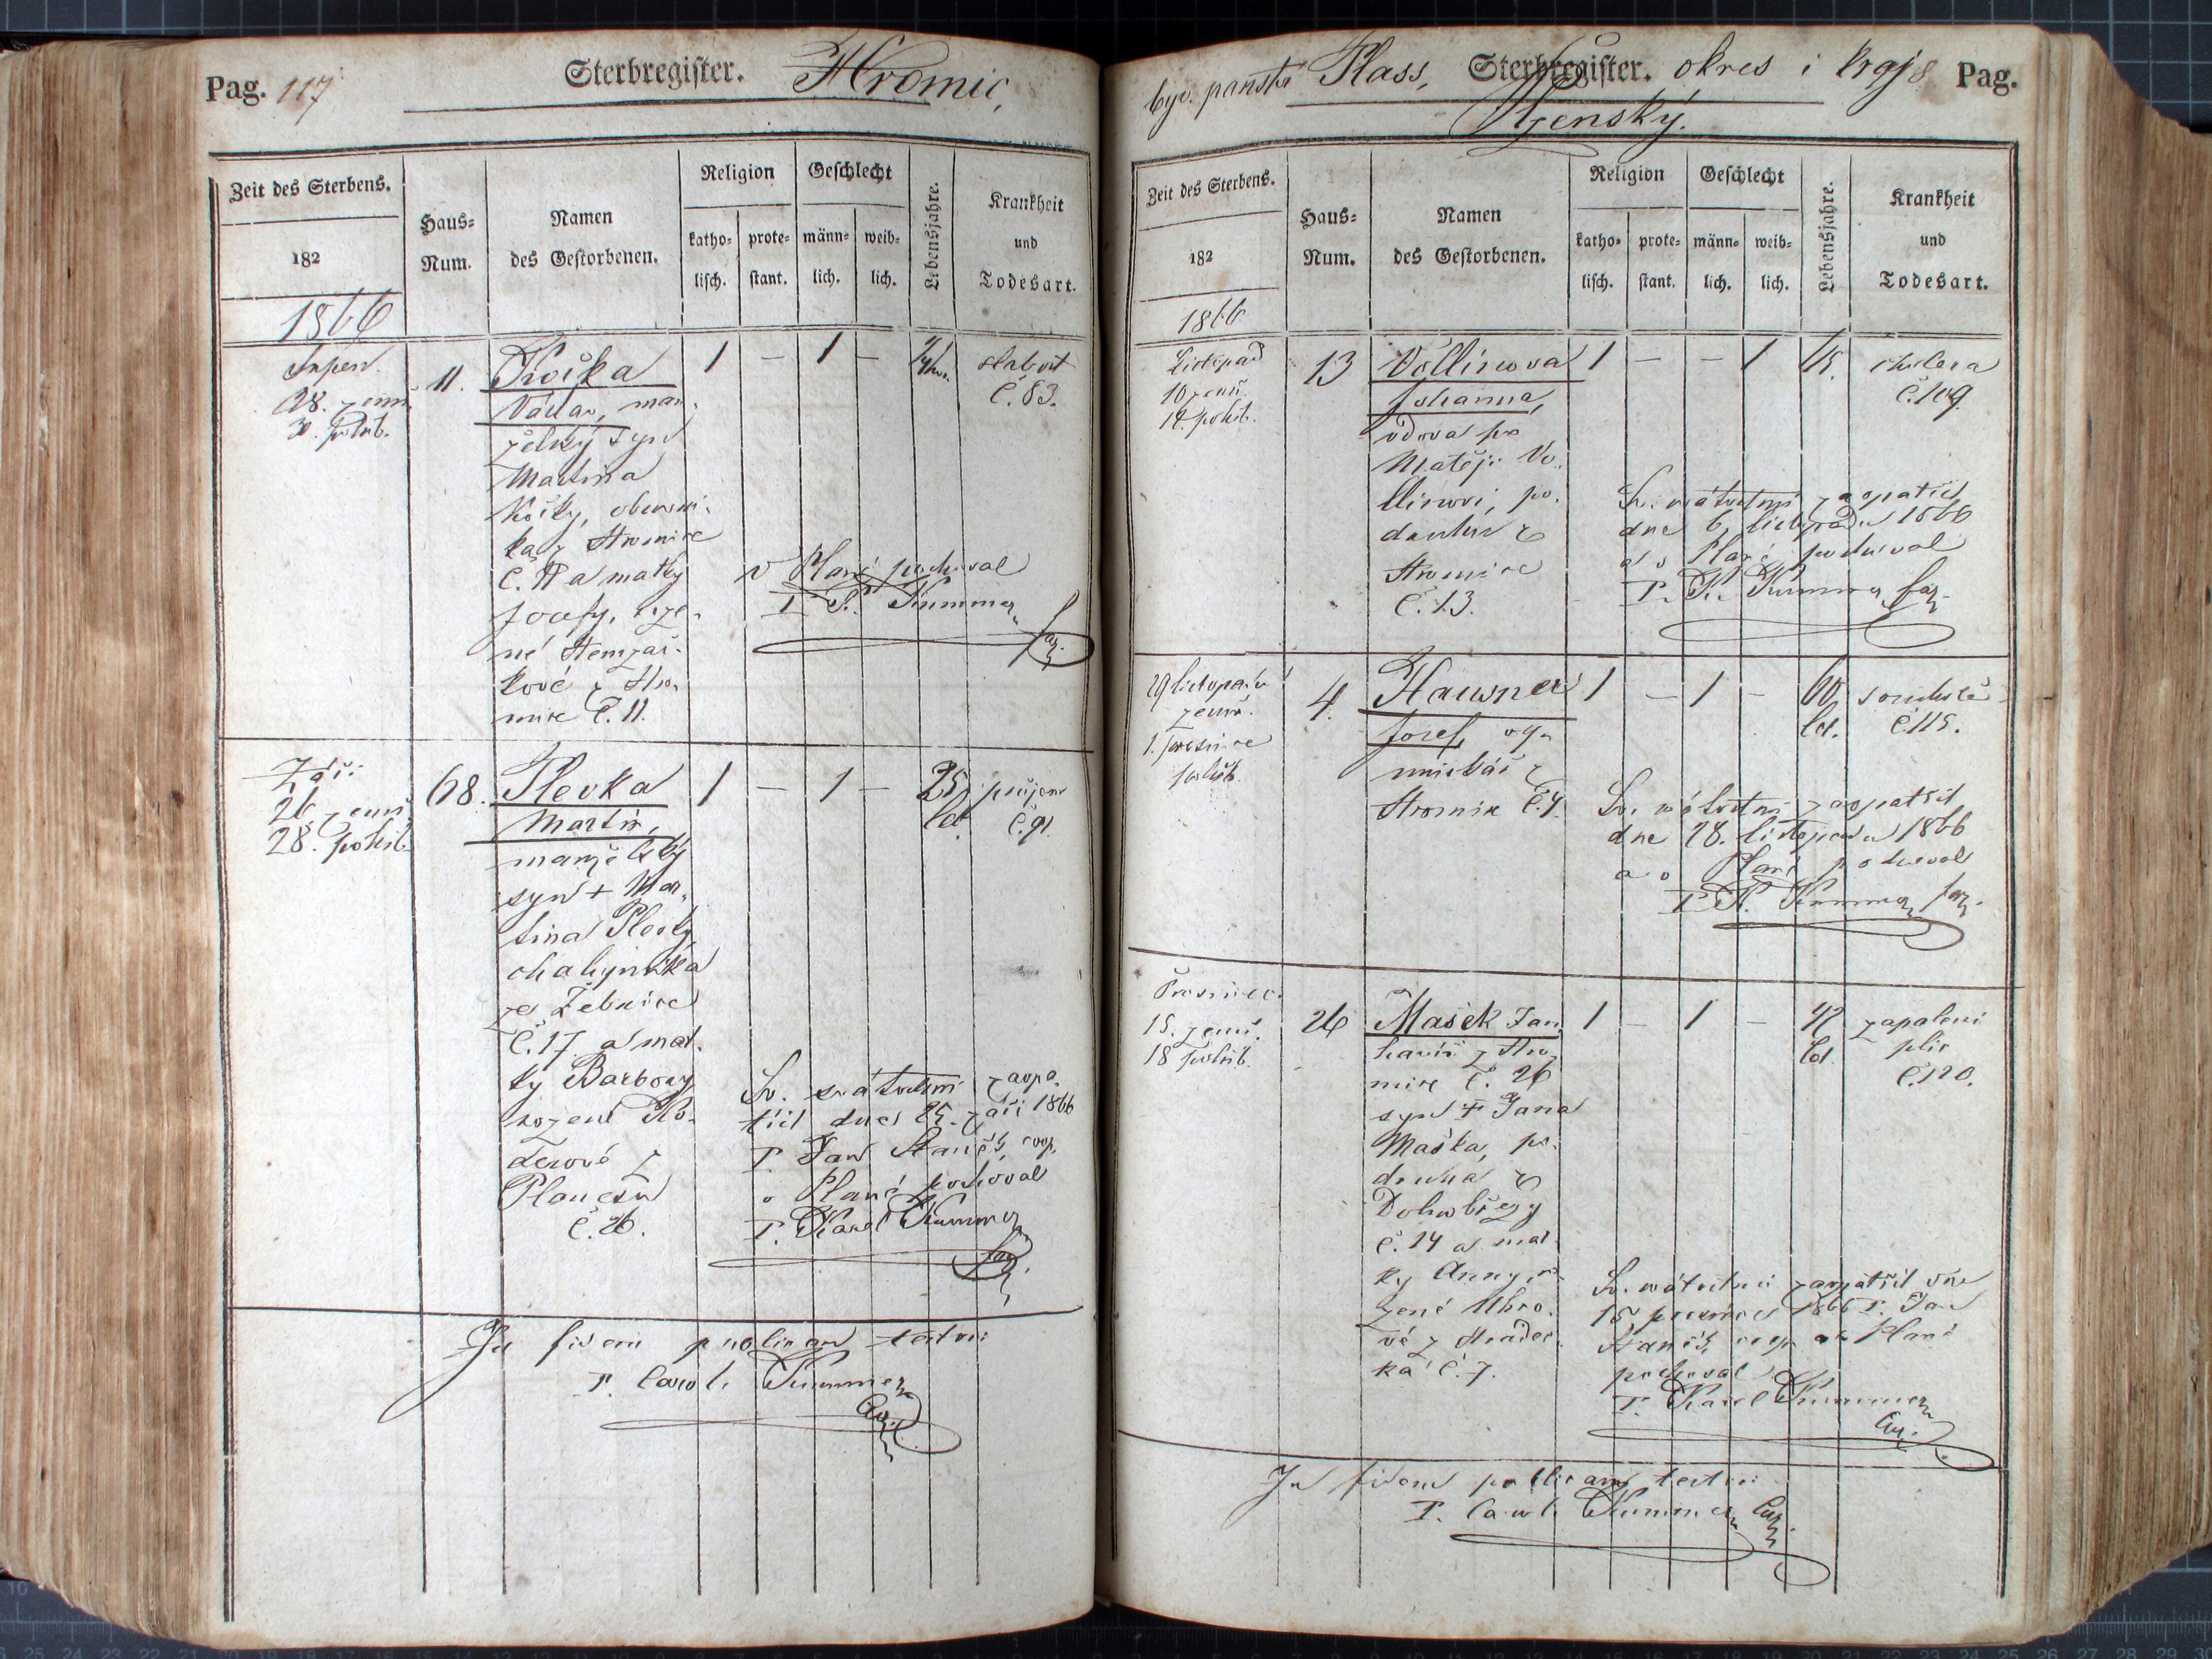 Pag. 117
Sterbregister. Hromic,
Zeit des Sterbens.
182
1866
Haus-
Num.
Namen
des Gestorbenen.
Religion
katho-
lisch.
prote-
stant.
Geschlecht
männ-
lich.
weib-
lich.
Lebensjahre.
Krankheit
und
Todesart.
Srpen
28. zemř.
30. pohřb.
11.
Kočka
Václav, man-
želský syn
Martina
Kočky, obecní-
ka z Hromice
Č. 11 a matky
Josefy, roze-
né
kové z Hro-
mice Č. 11.
1 — 1 —
slabost
Č. 83.
v Plané pochoval
P. K. Kummer
far.
Září
26. zemř.
28. pohřb.
68.
Plevka
Martin,
manželský
syn + Mar-
tina Plevky
chalupníka
ze Žebnice
Č. 17 a mat-
ky Barbory
rozené Ko-
derové z
Č. 26.
1 — 1 —
25
let
průjem
Č. 91.
Sv. svátostmi zaopa-
třil dne 25. září 1866
P. Jan Staněk, coop.
v Plané pochoval
P. Karel Kummer
far.
In fidem publicam testor
P. Caroli Kummer
Cur.
býv. panství Plass, Sterbregister. okres i kraj Pag.
Plzenský.
Zeit des Sterbens.
182
1866
Haus-
Num.
Namen
des Gestorbenen.
Religion
katho-
lisch.
prote-
stant.
Geschlecht
männ-
lich.
weib-
lich.
Lebensjahre.
Krankheit
und
Todesart.
Listopad
10 zemř.
12. pohřb.
13
Vollinova
Johanna,
vdova po
Matěji Vo-
llinovi, po-
druhu z
Hromice
Č. 13.
1 — — 1
cholera
Č. 109.
Sv. svátostmi zaopatřil
dne 6. listopadu 1866
a v Plané pochoval
P. K. Kummer far.
29 listopadu
zemř.
1. prosince
pohřb.
4.
Hausner
Josef, vý-
minkář z
Hromic Č. 4.
1 — 1 —
60
let.
souchotě
Č. 115.
Sv. svátostmi zaopatřil
dne 28. listopadu 1866
a v Plané pochoval
P. K. Kummer far.
Prosinec.
15. zemř.
18 pohřb.
26
Mašek Jan,
havíř z Hro-
mice Č. 26
syn + Jana
Maška, po-
druha z
Dolnobřezy
Č. 14 a mat-
ky Anny, ro-
zené Uhro-
vé z Hradec-
ka Č. 7.
1 — 1 —
42
let.
zapálení
plic
Č. 120.
Sv. svátostmi zaopatřil dne
15 prosince 1866 P. Jan
Staněk, coop. a v Plané
pochoval
P. Karel Kummer
Cur.
In fidem publicam testor
P. Caroli Kummer Cur.